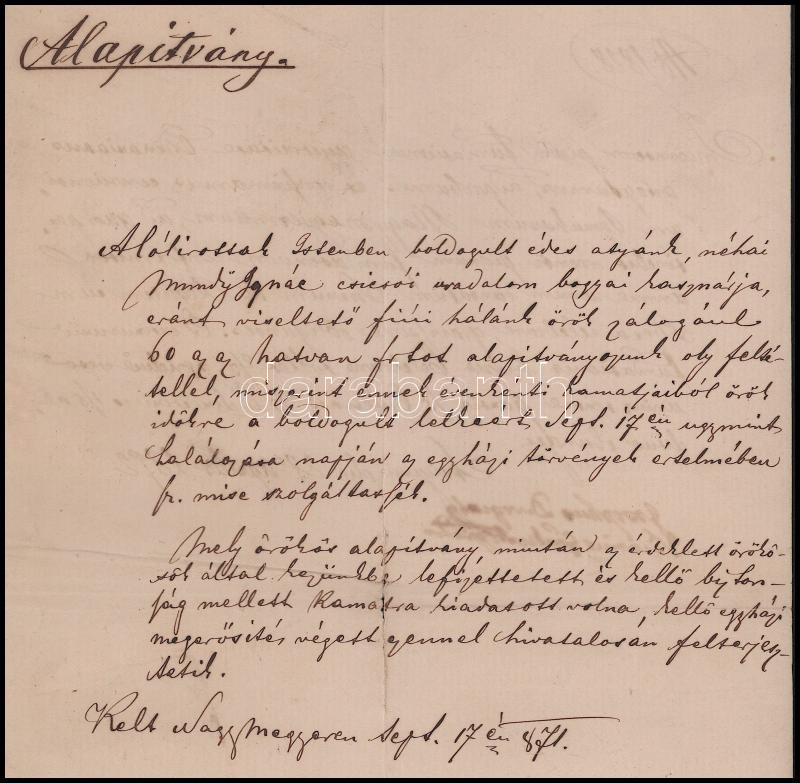 Alapitvány.
Alólirottak Istenben boldogult édes atyánk, néhai
Mundÿ Ignác csicsói uradalom bogyai kasznárja,
eránt viseltető fiúi hálánk örök zálogául
60 azaz hatvan frtot alapitványozunk oly felté-
tellel, miszerint ennek évenkénti kamatjaiból örök
időkre a boldogult lelkeért Sept. 17én ugymint
halálozása napján az egyházi törvények értelmében
sz. mise szolgáltassék.
Mely örökös alapitvány miután az érdeklett örökö-
sök által kezünkbe lefizettetett és kellő bizton-
ság mellett kamatra kiadatott volna, kellő egyházi
megerősités végett ezennel hivatalosan felterjesz-
tetik.
Kelt Nagymegyeren Sept. 17én 871.
darabanth